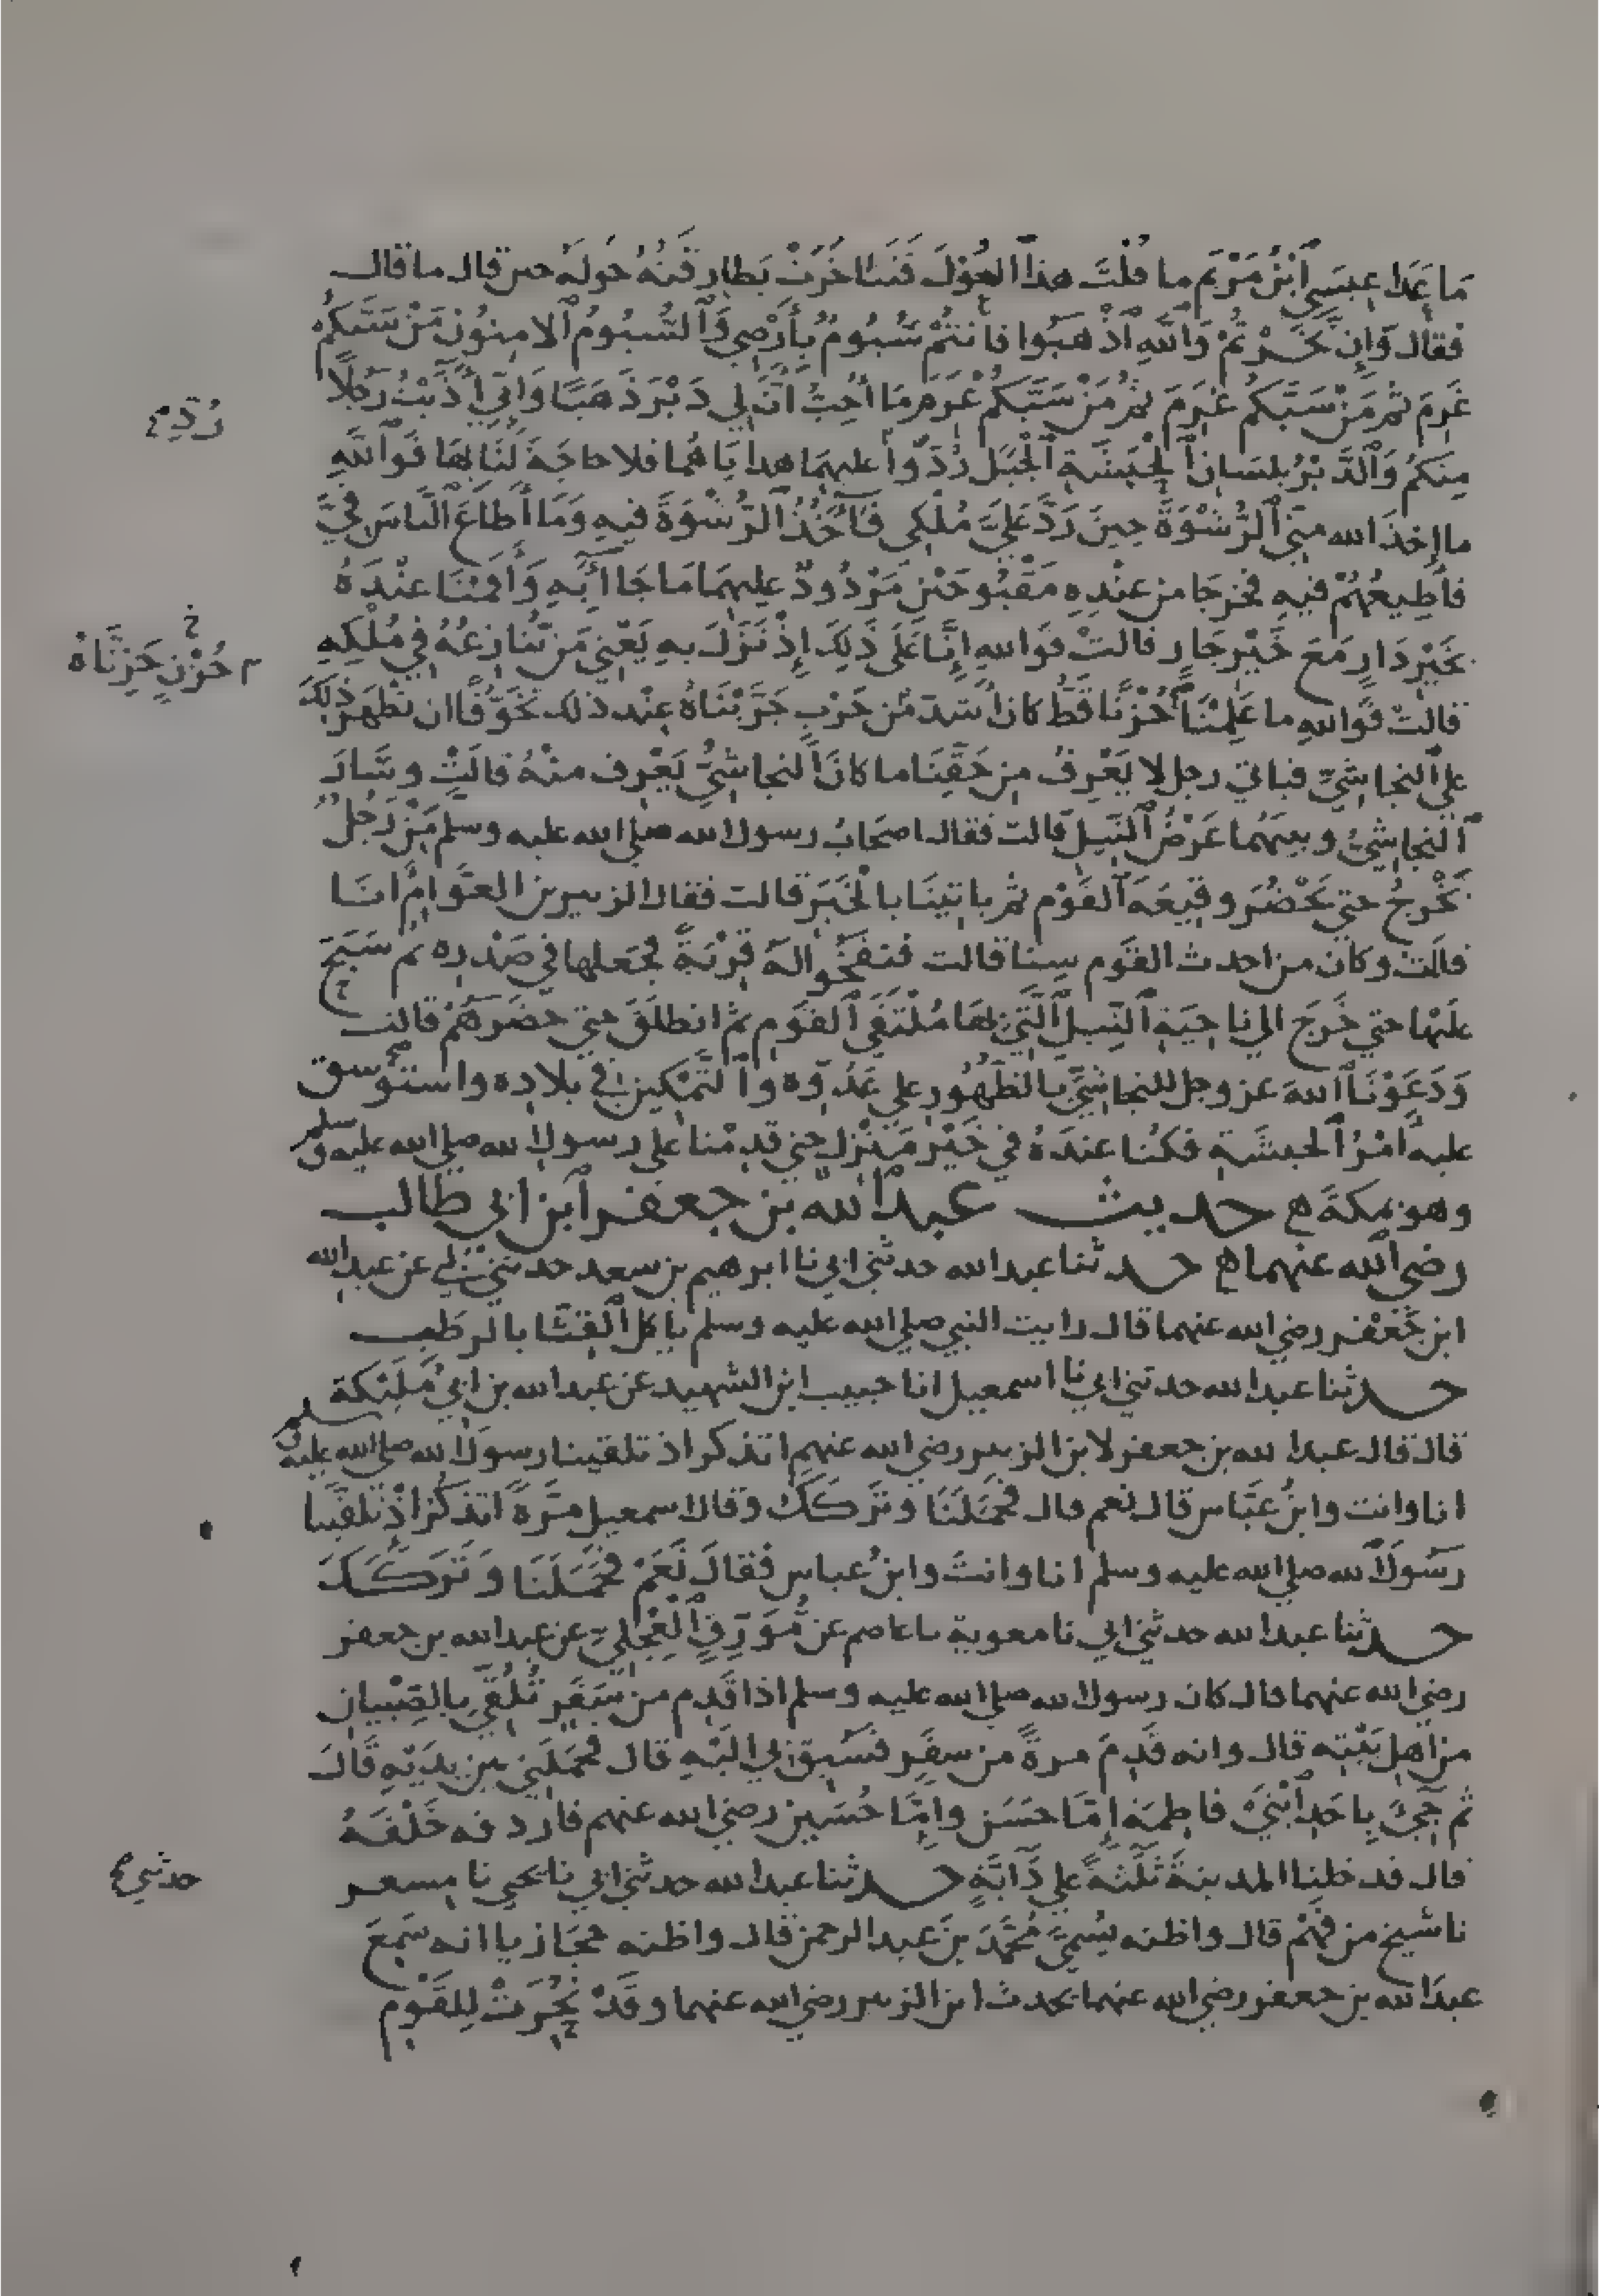 مَا عَدَا عِيسَي ٱبْنُ مَرْيَم ما قلتَ هذا ٱلعُوْدَ فَتَنَاخَرَتْ بَطارقَتُهُ حَولَهُ حين قال ما قال
فقال وَإِن نَخَرْتُمْ وَٱللهِ ٱذْهَبُوا فأنتُمْ سُيُومٌ بِأَرْضِي وَٱلسُّيُومُ ٱلامِنُون مَنْ سَبَّكُم
غَرِمَ ثم مَنْ سَبَّكُم غَرِمَ ثم مَنْ سَبَّكُم غَرِم مَا أُحِبُّ أَنَّ لِي دَبْرَ ذَهَبًا وَإِنِّي اذَيْتُ رَجُلًا
مِنكُم وَٱلدَّبْرُ بلسَانِ ٱلْحَبَشَةِ ٱلْجَبَل رُدُّوا عليهما هداياهُما فلا حاجَةَ لَنَا بها فَوَٱللهِ
ما أخذ الله مِنِّي ٱلرِّشْوَةَ حِينَ رَدَّ عَلَيَّ مُلْكِي فَآخُذَ ٱلرِّشْوَةَ فيهِ وَمَا أَطَاعَ ٱلنَّاسَ فِيَّ
فأُطِيعُهُمْ فيهِ فخرجَا من عنْدِهِ مَقْبُوحَيْنِ مَرْدُودٌ عليهِمَا مَا جَاآ بِهِ وَأَقَمْنَا عنْدَهُ
بخَيْرِ دَارٍ مَعَ خَيْرِ جَارٍ قالتْ فَوَاللهِ إِنَّا عَلَى ذَلِكَ إِذْ نَزَلَ بهِ يَعْنِي مَن يُنَازِعُهُ فِي مُلْكِهِ
قالتْ فَوَاللهِ ما عَلِمْنَا حُزْنًا قَطُّ كان أَشَدَّ مِن حَرْبٍ حَرَبْنَاهُ عِنْد ذلك تَخَوُّفًا ان يَظْهَرَ ذَلِكَ
علي ٱلنجاشيِّ فياتي رجل لا يَعْرِفُ مِن حَقِّنَا ما كانَ ٱلنجاشيُّ يَعْرِف منْهُ قالَتْ وسَارَ
ٱلنجاشيُّ وبينهُما عَرْضُ ٱلنِّيلِ قالت فقال اصحَابُ رسول الله صلي الله عليه وسلم مَنْ رَجُلٌ
يَخْرجُ حتي يَحْضُرَ وقِيعَةَ ٱلقَوْمِ ثم ياتِينَا بالخَبَرِ قالت فقال الزبير بن العَوَّامِ أنَا
قالَتْ وكان من احدث القَوم سِنًّا قالت فنفخُوا لهُ قِرْبَةً فجعلها في صَدْره ثم سَبَحَ
علَيْها حتي خَرَجَ الي نَاحِيَةِ ٱلنِّيلِ ٱلَّتِي بهَا مُلْتَقَى ٱلقَومِ ثم انطلَقَ حتي حَضَرَهُمْ قالت
وَدَعَوْنَا ٱللهَ عز وجل للنجاشيِّ بالظُّهُورِ علي عَدُوِّه وٱلتَّمْكِين في بلاده واستَوْسق
عليه أمْرُ ٱلحبشَةِ فكُنا عندَهُ في خَيْر مَنْزِلٍ حتي قدِمْنا علي رسول الله صلي الله عليه وسلم
وهو بمكة ه حديث عبد الله بن جعفر ٱبن ابي طالب
رضي الله عنهما ه حدثنا عبد الله حدثني ابي نا ابرهيم بن سعد حدثني ابي عن عبد الله
ابن جَعْفر رضي الله عنهما قال رايت النبي صلي الله عليه وسلم ياكل ٱلقثَّا بالرطَب
حدثنا عبد الله حدثني ابي نا اسمعيل انا حبيب ابن الشهيد عن عبد الله بن ابي مُلَيْكة
قال قال عبد الله بن جعفر لابن الزبير رضي الله عنهم اتذكر اذ تلقينا رسول الله صلي الله عليه وسلم
انا وانت وابنُ عَبّاس قال نعم قال فحَمَلَنَا وتَرَكَكَ وقال اسمعيل مَرَّةً اتذكر اذْ تلقَّينا
رَسُولَ الله صلي الله عليه وسلم انا وانتَ وابنُ عباس فقالَ نَعَمْ فحَمَلَنَا وَتَرَكَكَ
حدثنا عبد الله حدثني ابي نا معوية نا عاصم عن مُوَرِّقٍ ٱلْعِجْلِيِّ عن عبد الله بن جعفر
رضي الله عنهما قال كان رسول الله صلي الله عليه وسلم اذا قَدِم من سَفَرٍ تُلُقِّيَ بالصِّبْيانِ
من أهلِ بَيْتِه قال وانه قَدِمَ مرةً من سفَرٍ فسُبِقَ بي إلَيْهِ قال فحَمَلَنِي بين يَدَيْهِ قَالَ
ثم جِيَ بِأحَدِ ٱبْنَيْ فاطِمَة إمَّا حَسَن وإمَّا حُسَين رضي الله عنهم فاردفه خَلْفَهُ
قال فدخلنا المدينةَ ثَلَثَةً علي دَابَّةٍ حدثنا عبد الله حدثني ابي نا يحيي نا مسعر
نا شيخ من فَهْمٍ قال واظنه يُسَمَّيَ مُحَمَّدَ بنَ عبد الرحمن قال واظنه حِجَازيا انه سَمِعَ
عبدَ الله بن جعفر رضي الله عنهما يحدث ابن الزبير رضي الله عنهما وقَدْ نُحِرَتْ لِلقَوْمِ
رُدِّم
خ
م حُزْنٍ حَزِنَّاهُ
حدثني م